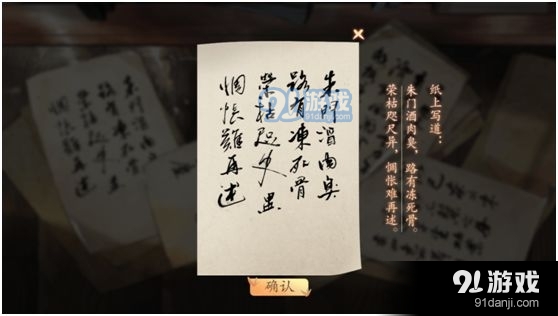 朱门酒肉臭
路有凍死骨
榮枯咫尺異
惆悵難再述
纸上写道：
朱门酒肉臭，路有冻死骨。
荣枯咫尺异，惆怅难再述。
确认
91游戏
91danji.com
91游戏
91danji.com